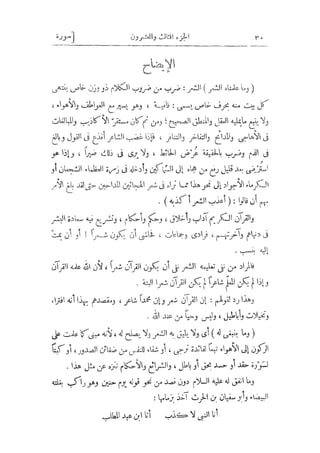 ٣٠ الجزء الثالث والعشرون [سورة
الإيضاح
( وما علمناه الشعر ) الشعر : ضرب من ضروب الكلام ذو وزن خاص ينتهى
كل بيت منه بحرف خاص يسمى : قافية ، وهو يسير مع العواطف والأهواء ،
ولا يتبع ما يمليه العقل والمنطق الصحيح ؛ ومن ثم كان مستقرّ الأكاذيب والمبالغات
فى الأهاجى والمدائح والتفاخر والتنافر ، فإذا غضب الشاعر أقذع فى القول وبالغ
فى الذم وضرب بالحقيقة عُرْض الحائط ، ولا يرى فى ذلك ضيرا ، وإذا هو
استُرضى بعد قليل رفع من هجاه إلى السّماكين وأدخله فى زمرة العظماء الشجعان أو
الكرماء الأجواد إلى نحو هذا مما تراه فى شعر المداحين حتى لقد بلغ الأمر
بهم أن قالوا : ( أعذب الشعر أكذبه ) .
والقرآن الكريم آداب وأخلاق ، وحكم وأحكام ، وتشريع فيه سعادة البشر
فى دنياهم وآخرتهم ، فرادى وجماعات ، فحاشى أن يكون شعرا أو أن يمتّ
إليه بنسب .
فالمراد من نفى تعليمه الشعر نفى أن يكون القرآن شعرا ، لأن الله علمه القرآن
وإذا لم يكن المعلّم شاعرا لم يكن القرآن شعرا البتة .
وهذا رد لقولهم : إن القرآن شعر وإن محمدا شاعر ، ومقصدهم بهذا أنه افتراء
وتخيلات وأباطيل ، وليس وحيا من عند الله .
( وما ينبغى له ) أى ولا يليق به الشعر ولا يصلح له ، لأنه مبنى كما علمت على
الركون إلى الأهواء تبعا لفائدة ترجى ، أو شفاء للنفس من ضغائن الصدور ، أو كبتا
لسَوْرة حقد أو حسد بحق أو باطل ، والشرائع والأحكام تنزه عن مثل هذا .
وما اتفق له عليه السلام دون قصد من نحو قوله يوم حنين وهو راكب بغلته
البيضاء وأبو سفيان بن الحرث آخذ بزمامها :
أنا النبى لا كذب أنا ابن عبد المطلب